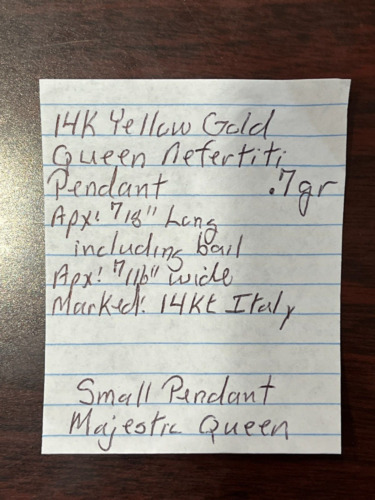 14K Yellow Gold
Queen Nefertiti
Pendant .7gr
Apx! 7/8" Long
including bail
Apx! 7/16" wide
Marked! 14Kt Italy
Small Pendant
Majestic Queen